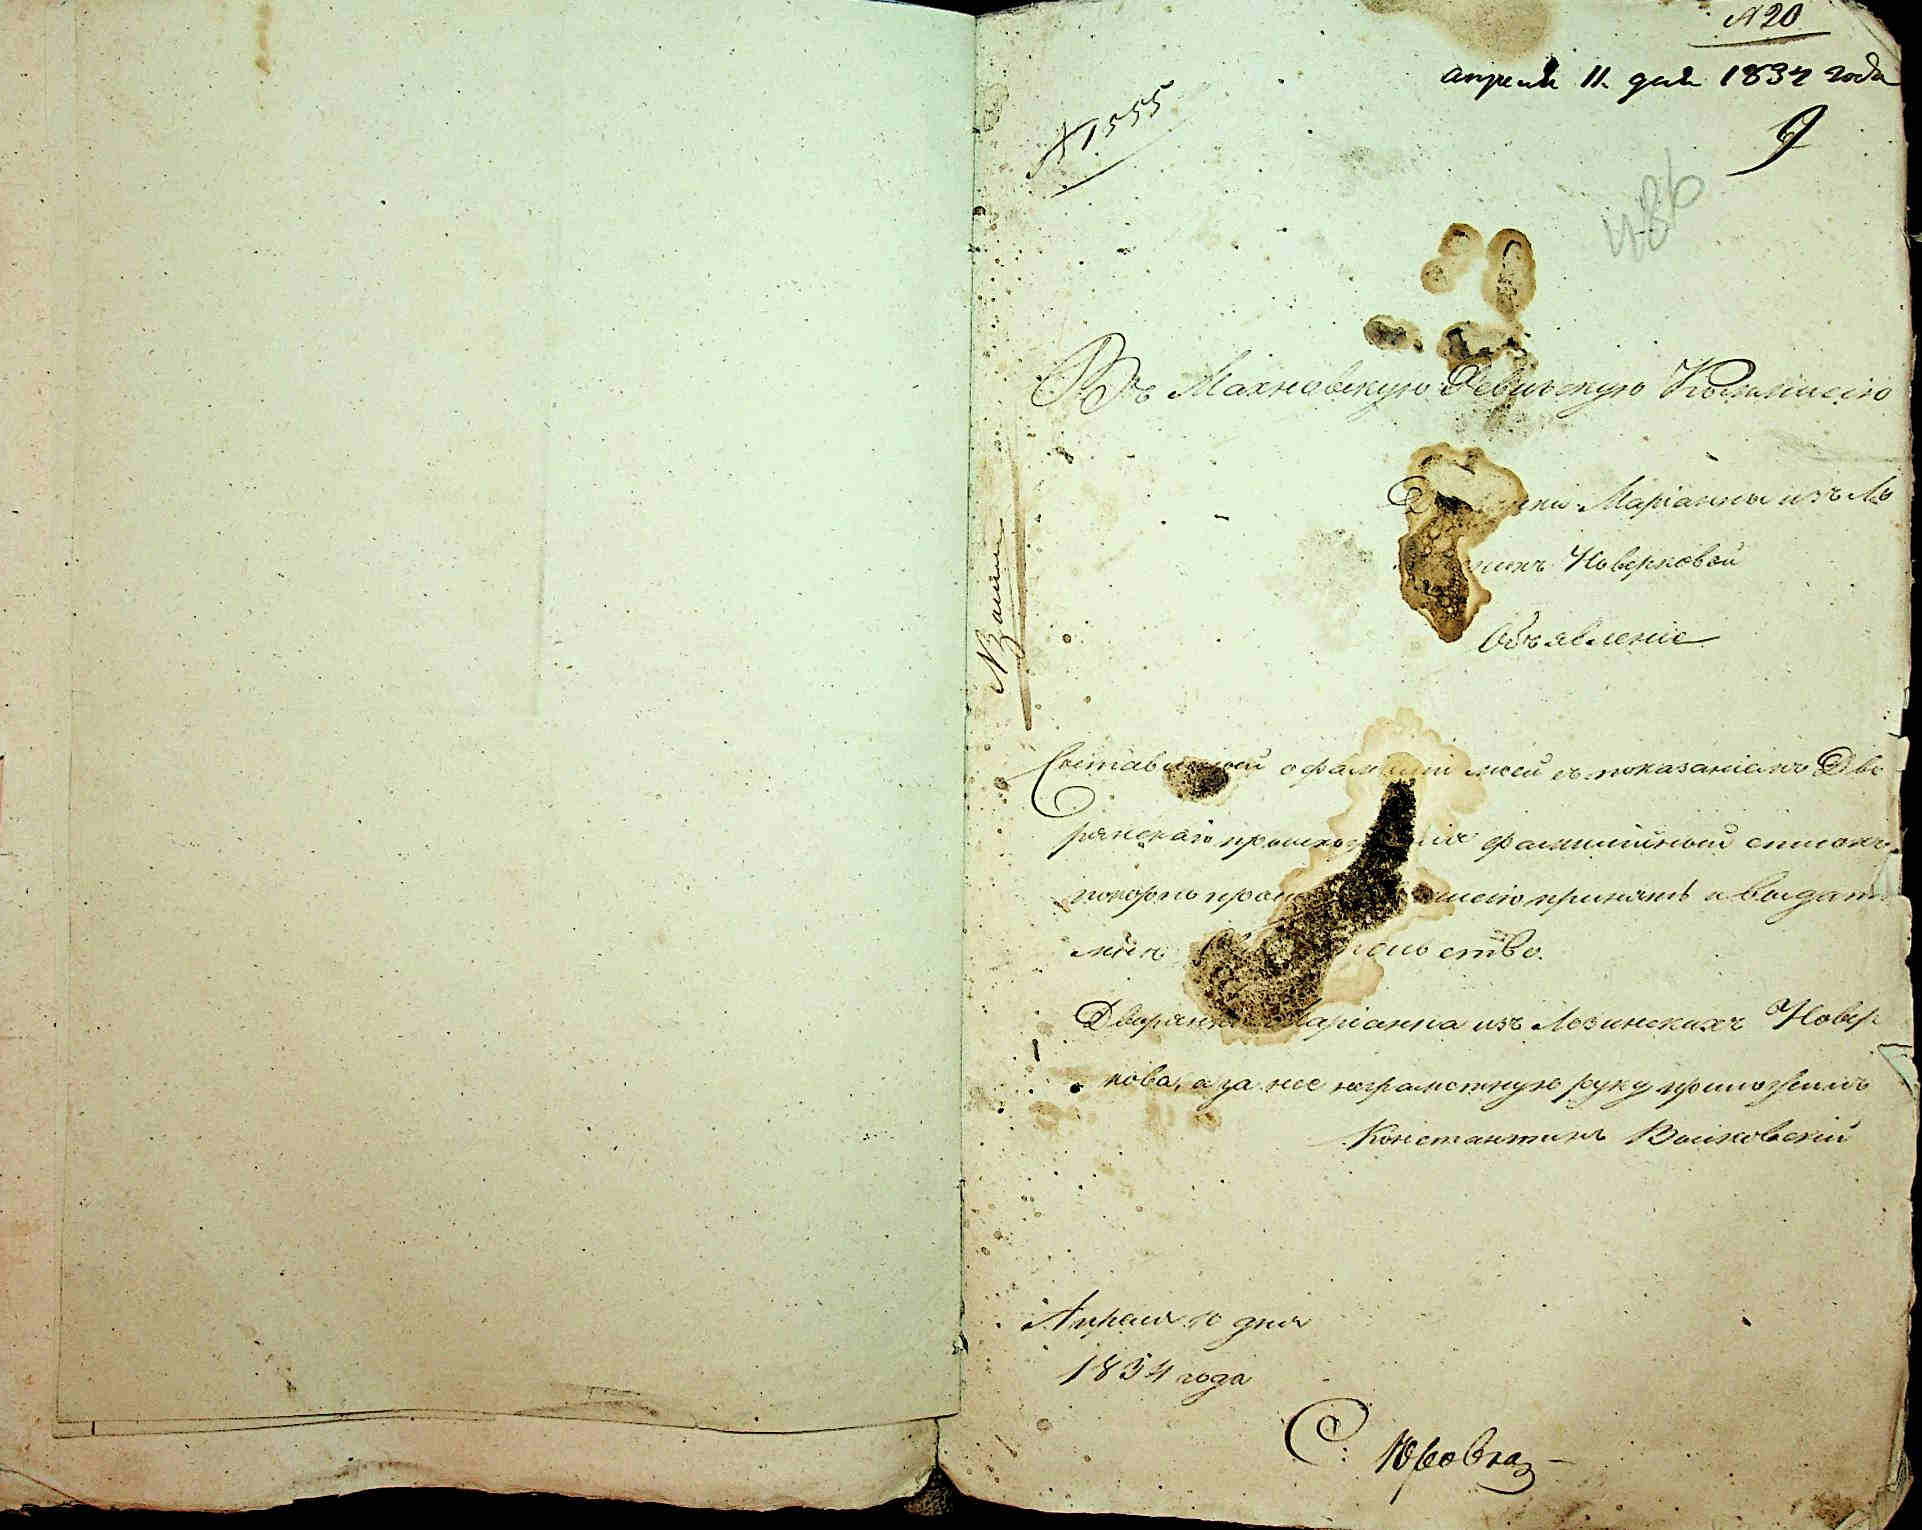 № 20
апреля 11. дня 1834 года
9
№ 1555
486
Въ Махновскую Ревизскую Коммисію
Маріанны изъ Ло
Новерковой
Объявленіе
о фамиліи моей съ показаніемъ Дво
рянскаго происхожденія фамилийный списокъ
покорно прошу принять и выдать
мнѣ
Дворянка Маріанна изъ Лозинскихъ Новер
кова, а за нее неграмотную руку приложилъ
Константинъ Волковскій
Апреля 10 дня
1834 года
С: Юровка